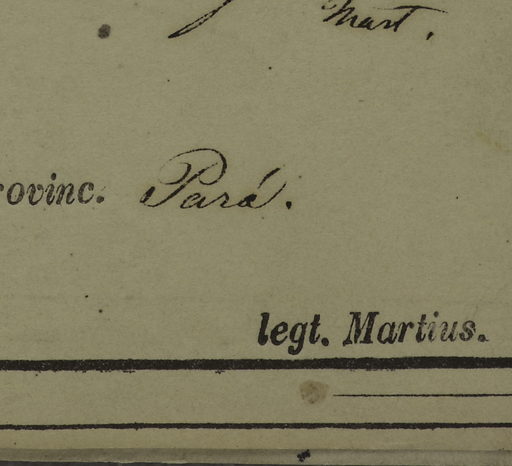 Mart.
rovinc. Pará.
legt. Martius.